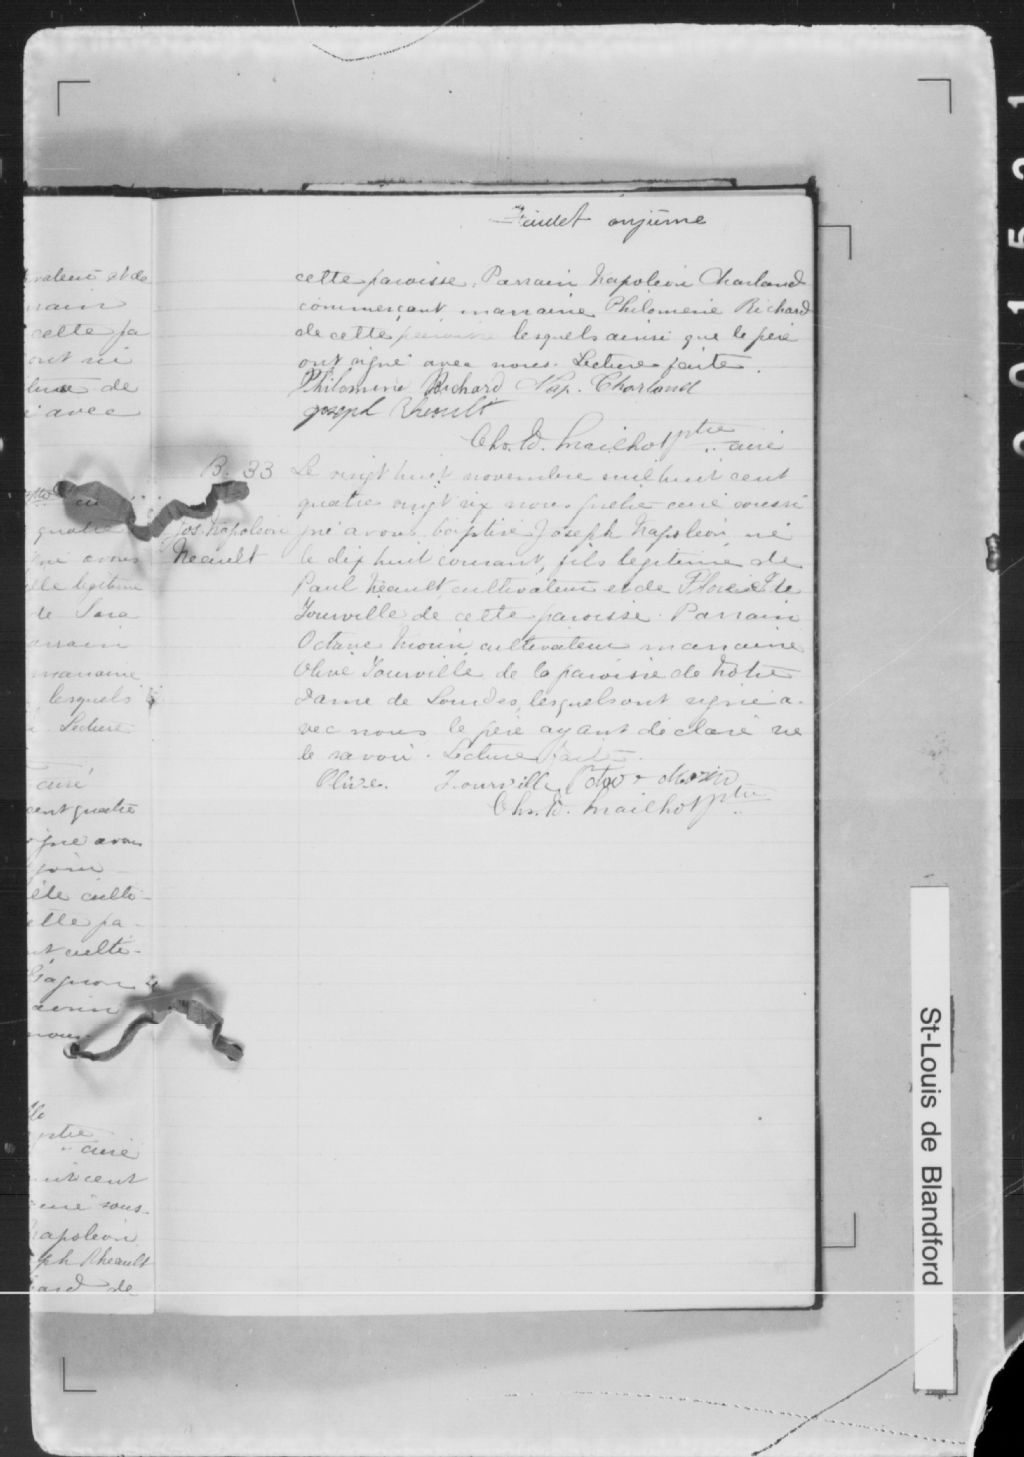 Feuillet onzième
cette paroisse. Parrain Napoléon Charland
commerçant marraine Philomène Richard
de cette paroisse lesquels ainsi que le père
ont signé avec nous. Lecture faite.
Philomène Richard Nap. Charland
Joseph Rheault
Chs. Ed. Mailhot ptre curé
B. 33
Jos. Napoléon
Neault
Le vingt huit novembre mil huit cent
quatre vingt six nous prêtre curé soussi
gné avons baptisé Joseph Napoléon né
le dix huit courant, fils légitime de
Paul Neault cultivateur et de
Tourville de cette paroisse. Parrain
Octave Morin cultivateur marraine
Olive Tourville de la paroisse de Notre
Dame de Lourdes, lesquels ont signé a-
vec nous le père ayant déclaré ne
le savoir. Lecture faite.
Olive Tourville Octave Morin
Chs. Ed. Mailhot ptre
et de
cette pa
de
avec
quatre
avons
légitime
de Sara
marraine
lesquels
Lecture
curé
cent quatre
gné avons
culti-
cette pa-
culti-
Gagnon
nous.
ptre
curé
cent
curé sous-
Napoléon
Rheault
de
St-Louis de Blandford